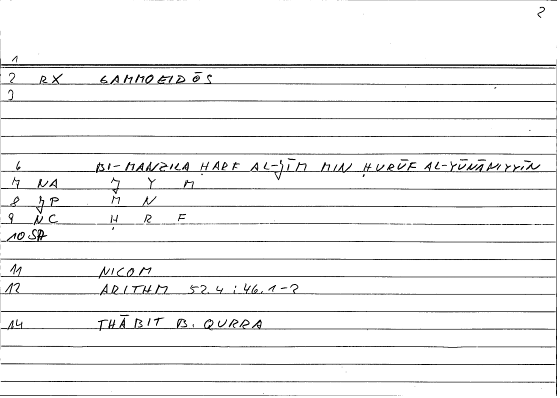 2
1
2 RX GAMMOEIDŌS
3
6 BI-MANZILA ḤARF AL-ǦĪM MIN ḤURŪF AL-YŪNĀNIYYĪN
7 NA Ǧ Y M
8 ǦP M N
9 NC Ḥ R F
10 SA
11 NICOM
12 ARITHM 52.4 ; 46.1-2
14 THĀBIT B. QURRA